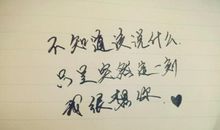 不知道该说什么
只是突然这一刻
我很想你.♥